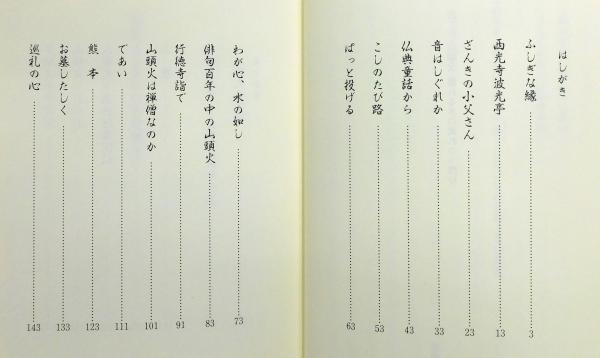 はしがき
ふしぎな縁 3
西光寺波光亭 13
ざんきの小父さん 23
音はしぐれか 33
仏典童話から 43
こしのたび路 53
ぱっと投げる 63
わが心、水の如し 73
俳句百年の中の山頭火 83
行徳寺詣で 91
山頭火は禅僧なのか 101
であい 111
熊本 123
お墓したしく 133
巡礼の心 143